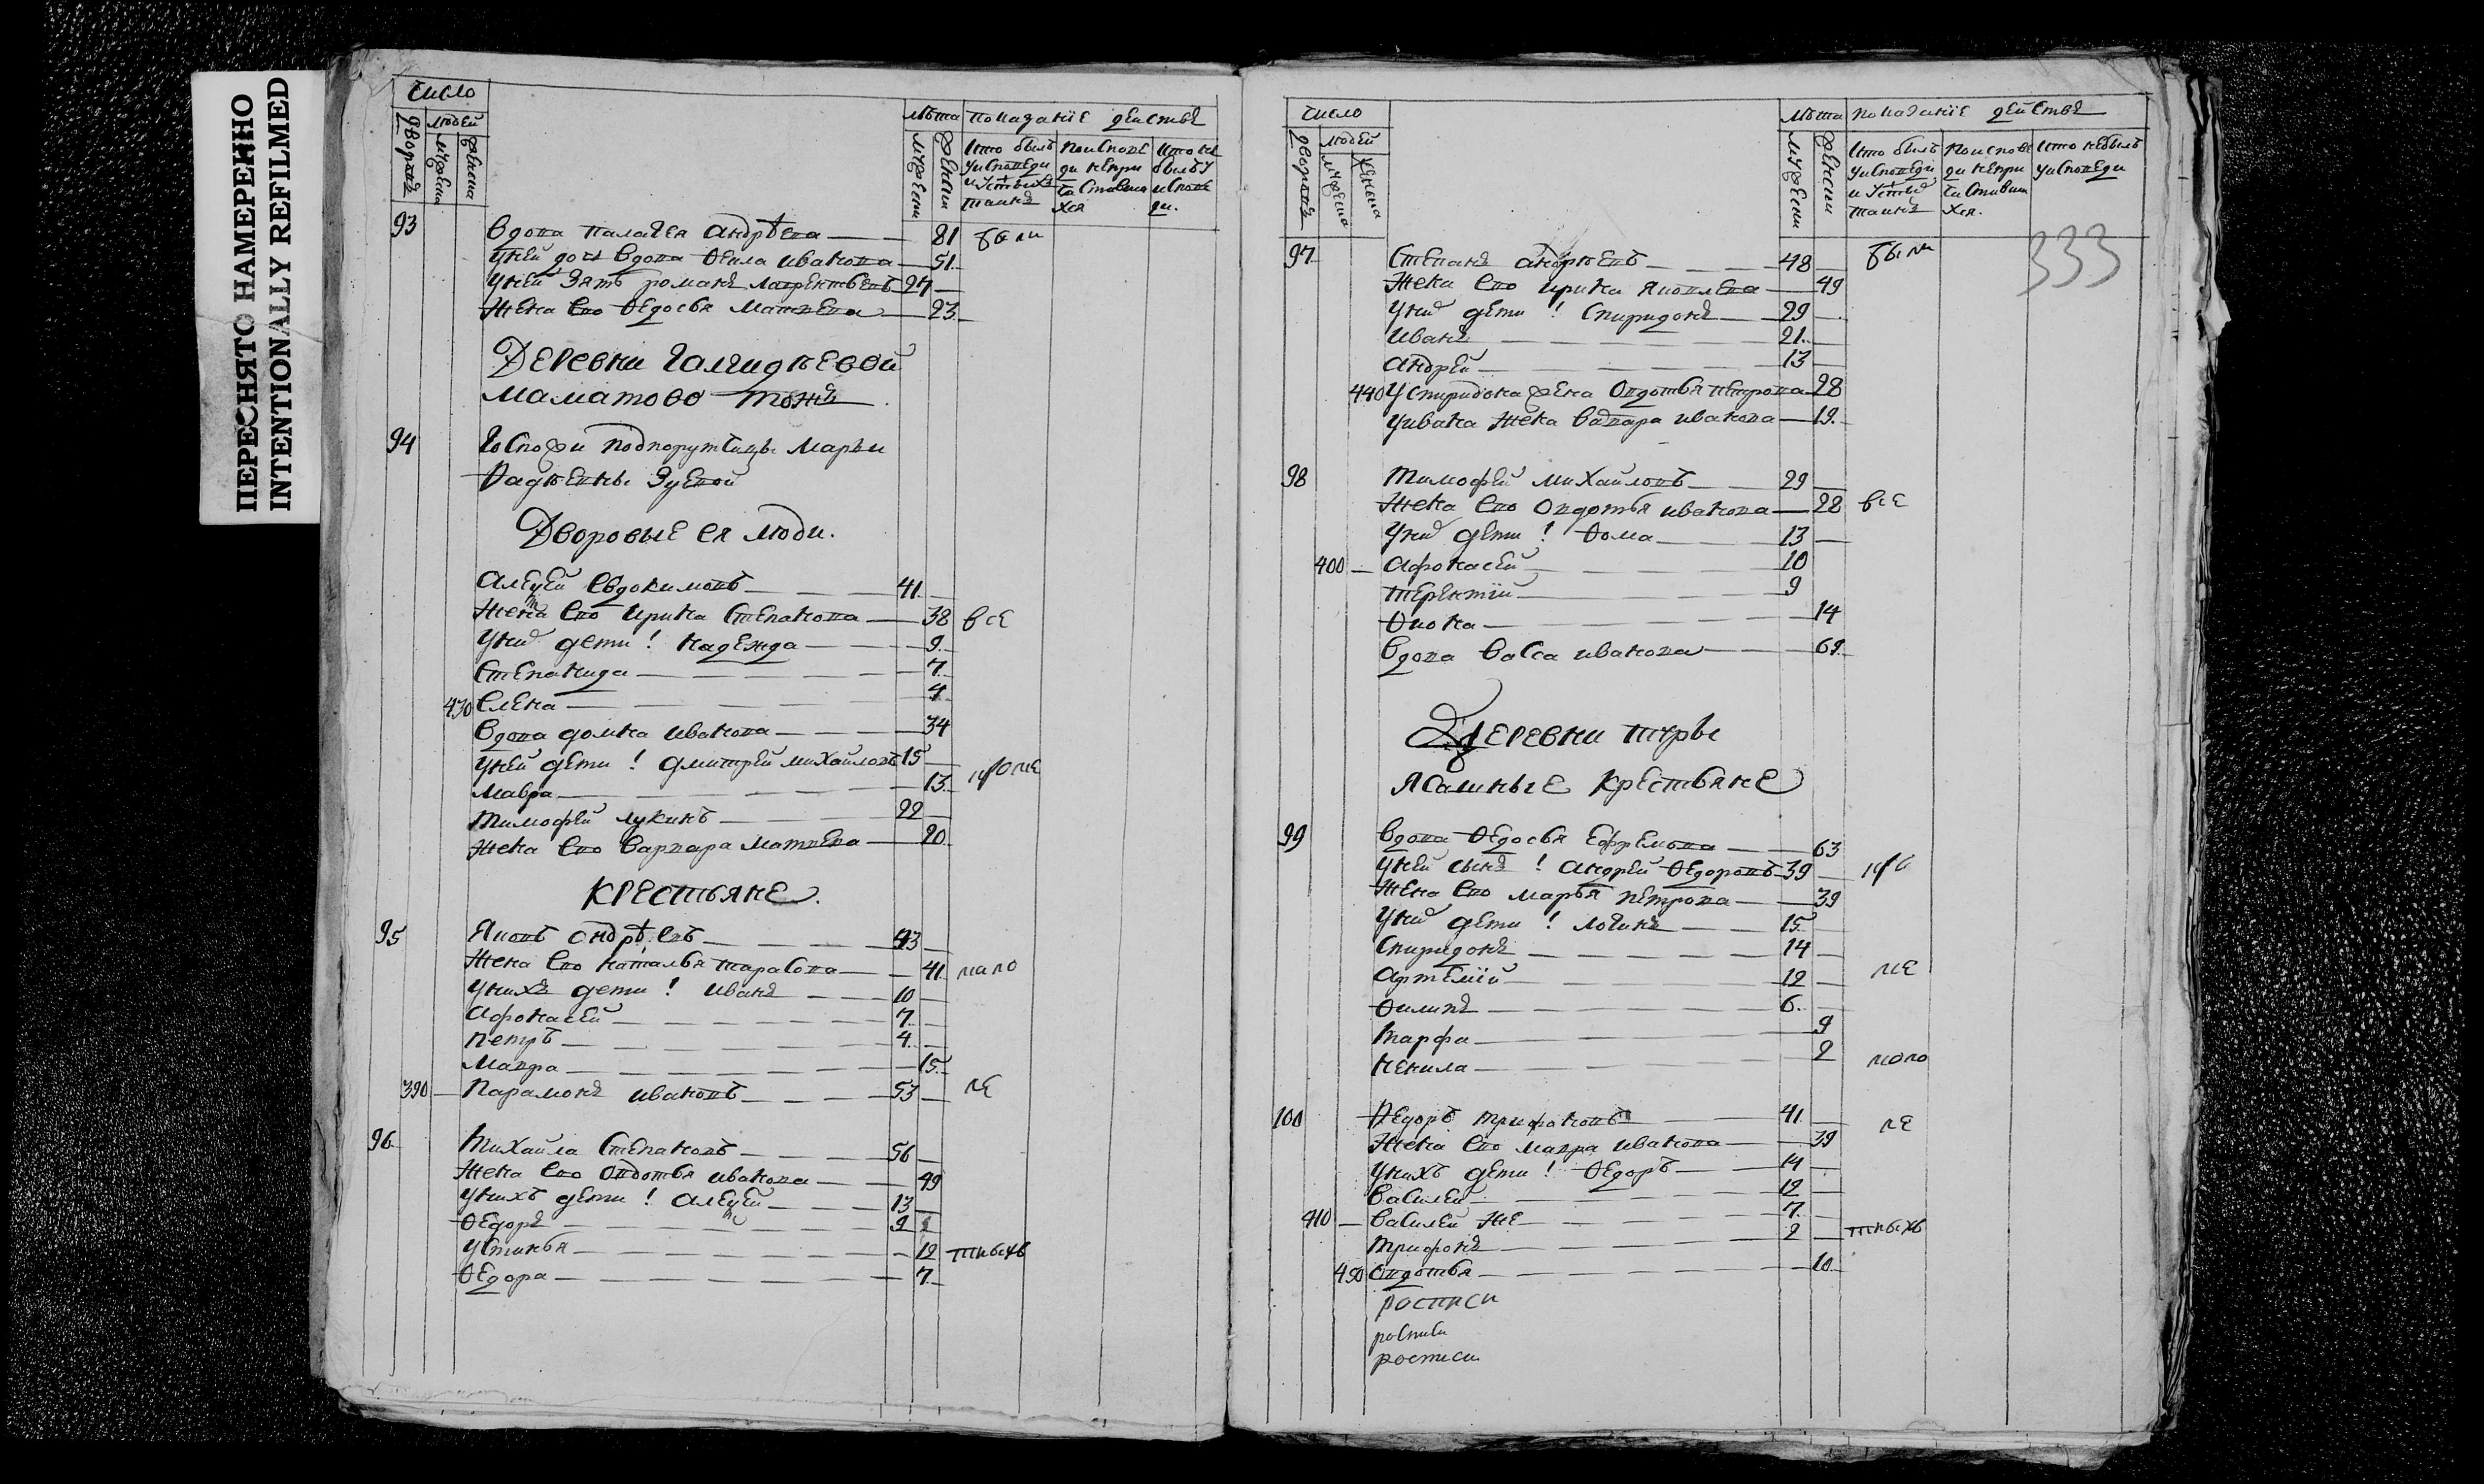 ПЕРЕСНЯТО НАМЕРЕННО
INTENTIONALLY REFILMED
число
дворовъ
людей
мужеска
женска
лѣта
мужески
женски
показаніе действъ
кто былъ у исповеди и у с†ыхъ таинъ
по исповеди не причастившихся
кто не былъ у исповеди
93 вдова палагея андрѣева 81 были
у ней дочь вдова Ѳекла иванова 51
у ней зять романъ лаврентьевъ 27
жена ево Ѳедосья матвеева 23
Деревни
маматово тожъ
94 Госпожи подпорутчицы Марьи
Ѳадѣевны Зуевой
Дворовые ея люди.
алеѯей евдокимовъ 41
жена ево ирина степанова 38 все
у них дети ! надежда 9
степанида 7
430 елена 4
вдова домна иванова 34
у ней дети ! дмитрей михайловъ 15
мавра 13 кроме
тимофей лукинъ 22
жена ево варвара матвеева 20
крестьяне
95 яковъ андрѣевъ 43
жена ево наталья тарасова 41 мало
у нихъ дети ! иванъ 10
афонасей 7
петръ 4
мавра 15
390 парамонъ ивановъ 53 ле
96 михайла степановъ 56
жена ево овдотья иванова 49
у нихъ дети ! алеѯей 13
Ѳедоръ 9
устинья 12 тныхъ
Ѳедора 7
число
дворовъ
людей
мужеска
женска
лѣта
мужески
женски
показаніе действъ
кто былъ у исповеди и у с†ыхъ таинъ
по исповеди не причастившихся
кто не былъ у исповеди
333
97 степанъ андрѣевъ 48 были
жена ево ирина яковлева 49
у них дети ! спиридонъ 29
иванъ 21
андрей 13
440 у спиридона жена овдотья петрова 28
у ивана жена варвара иванова 19
98 тимофей михайловъ 29
жена ево овдотья иванова 28 все
у них дети ! Ѳома 13
400 афонасей 10
терентій 9
14
вдова васса иванова 69
Деревни туры
ясашные крестьяне
99 вдова Ѳедосья ефремова 63
у ней сынъ ! андрей Ѳедоровъ 39 кро
жена ево марья петрова 39
у них дети ! логинъ 15
спиридонъ 14
артемій 12 ме
Ѳилипъ 6
марфа 9
ненила 2 мало
100 Ѳедоръ трифоновъ 41 ле
жена ево мавра иванова 39
у нихъ дети ! Ѳедоръ 14
василей 12
410 василей же 7
трифонъ 2 тныхъ
450 овдотья 10
росписи
росписи
росписи